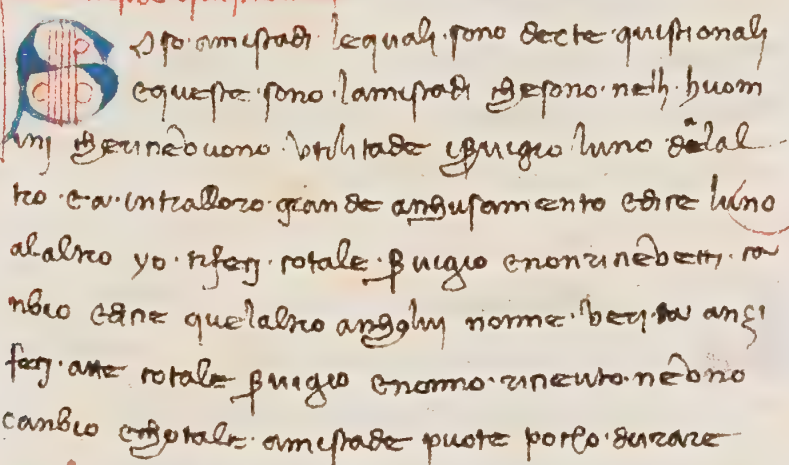 Sono amistadi lequali sono decte quistionali
equeste sono lamistadi chesono nelli huom
ini chericeuono vtilitade eseruigio luno dalal
tro ea intralloro grande anchusamento edice luno
alaltro yo tifeci cotale seruigio enonriceuetti ca
nbio edice quelaltro nonne verita anzi
feci atte cotale seruigio enonno riceuto neono
canbio cotale amistade puote poco durare